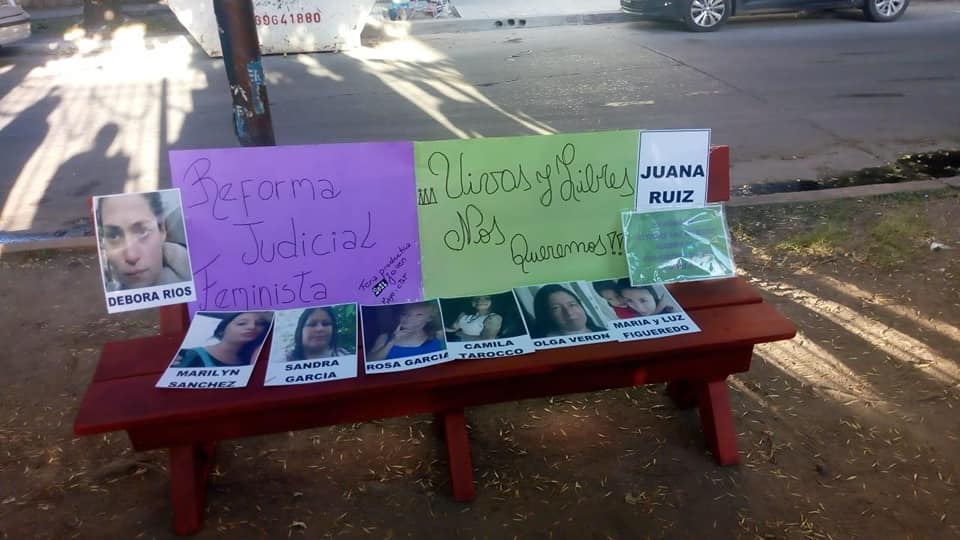 39641880
Reforma
Judicial
Feminista
Feria productiva
Joven
Vivas y Libres
Nos
Queremos!!
JUANA
RUIZ
DEBORA RIOS
MARILYN
SANCHEZ
SANDRA
GARCIA
ROSA GARCIA
CAMILA
TAROCCO
OLGA VERON
MARIA y LUZ
FIGUEREDO